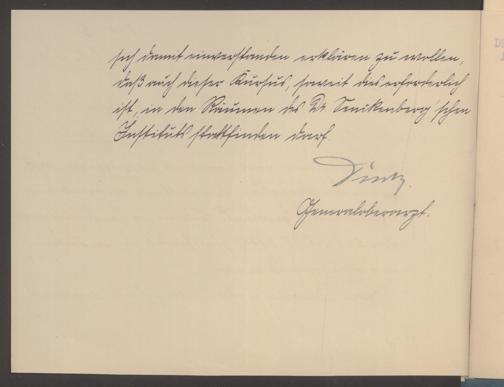 sich damit einverstanden erklären zu wollen,
daß auch dieser Kursus, soweit dies erforderlich
ist, in den Räumen des Dr Senckenberg'schen
Instituts stattfinden darf.
Generaloberarzt.